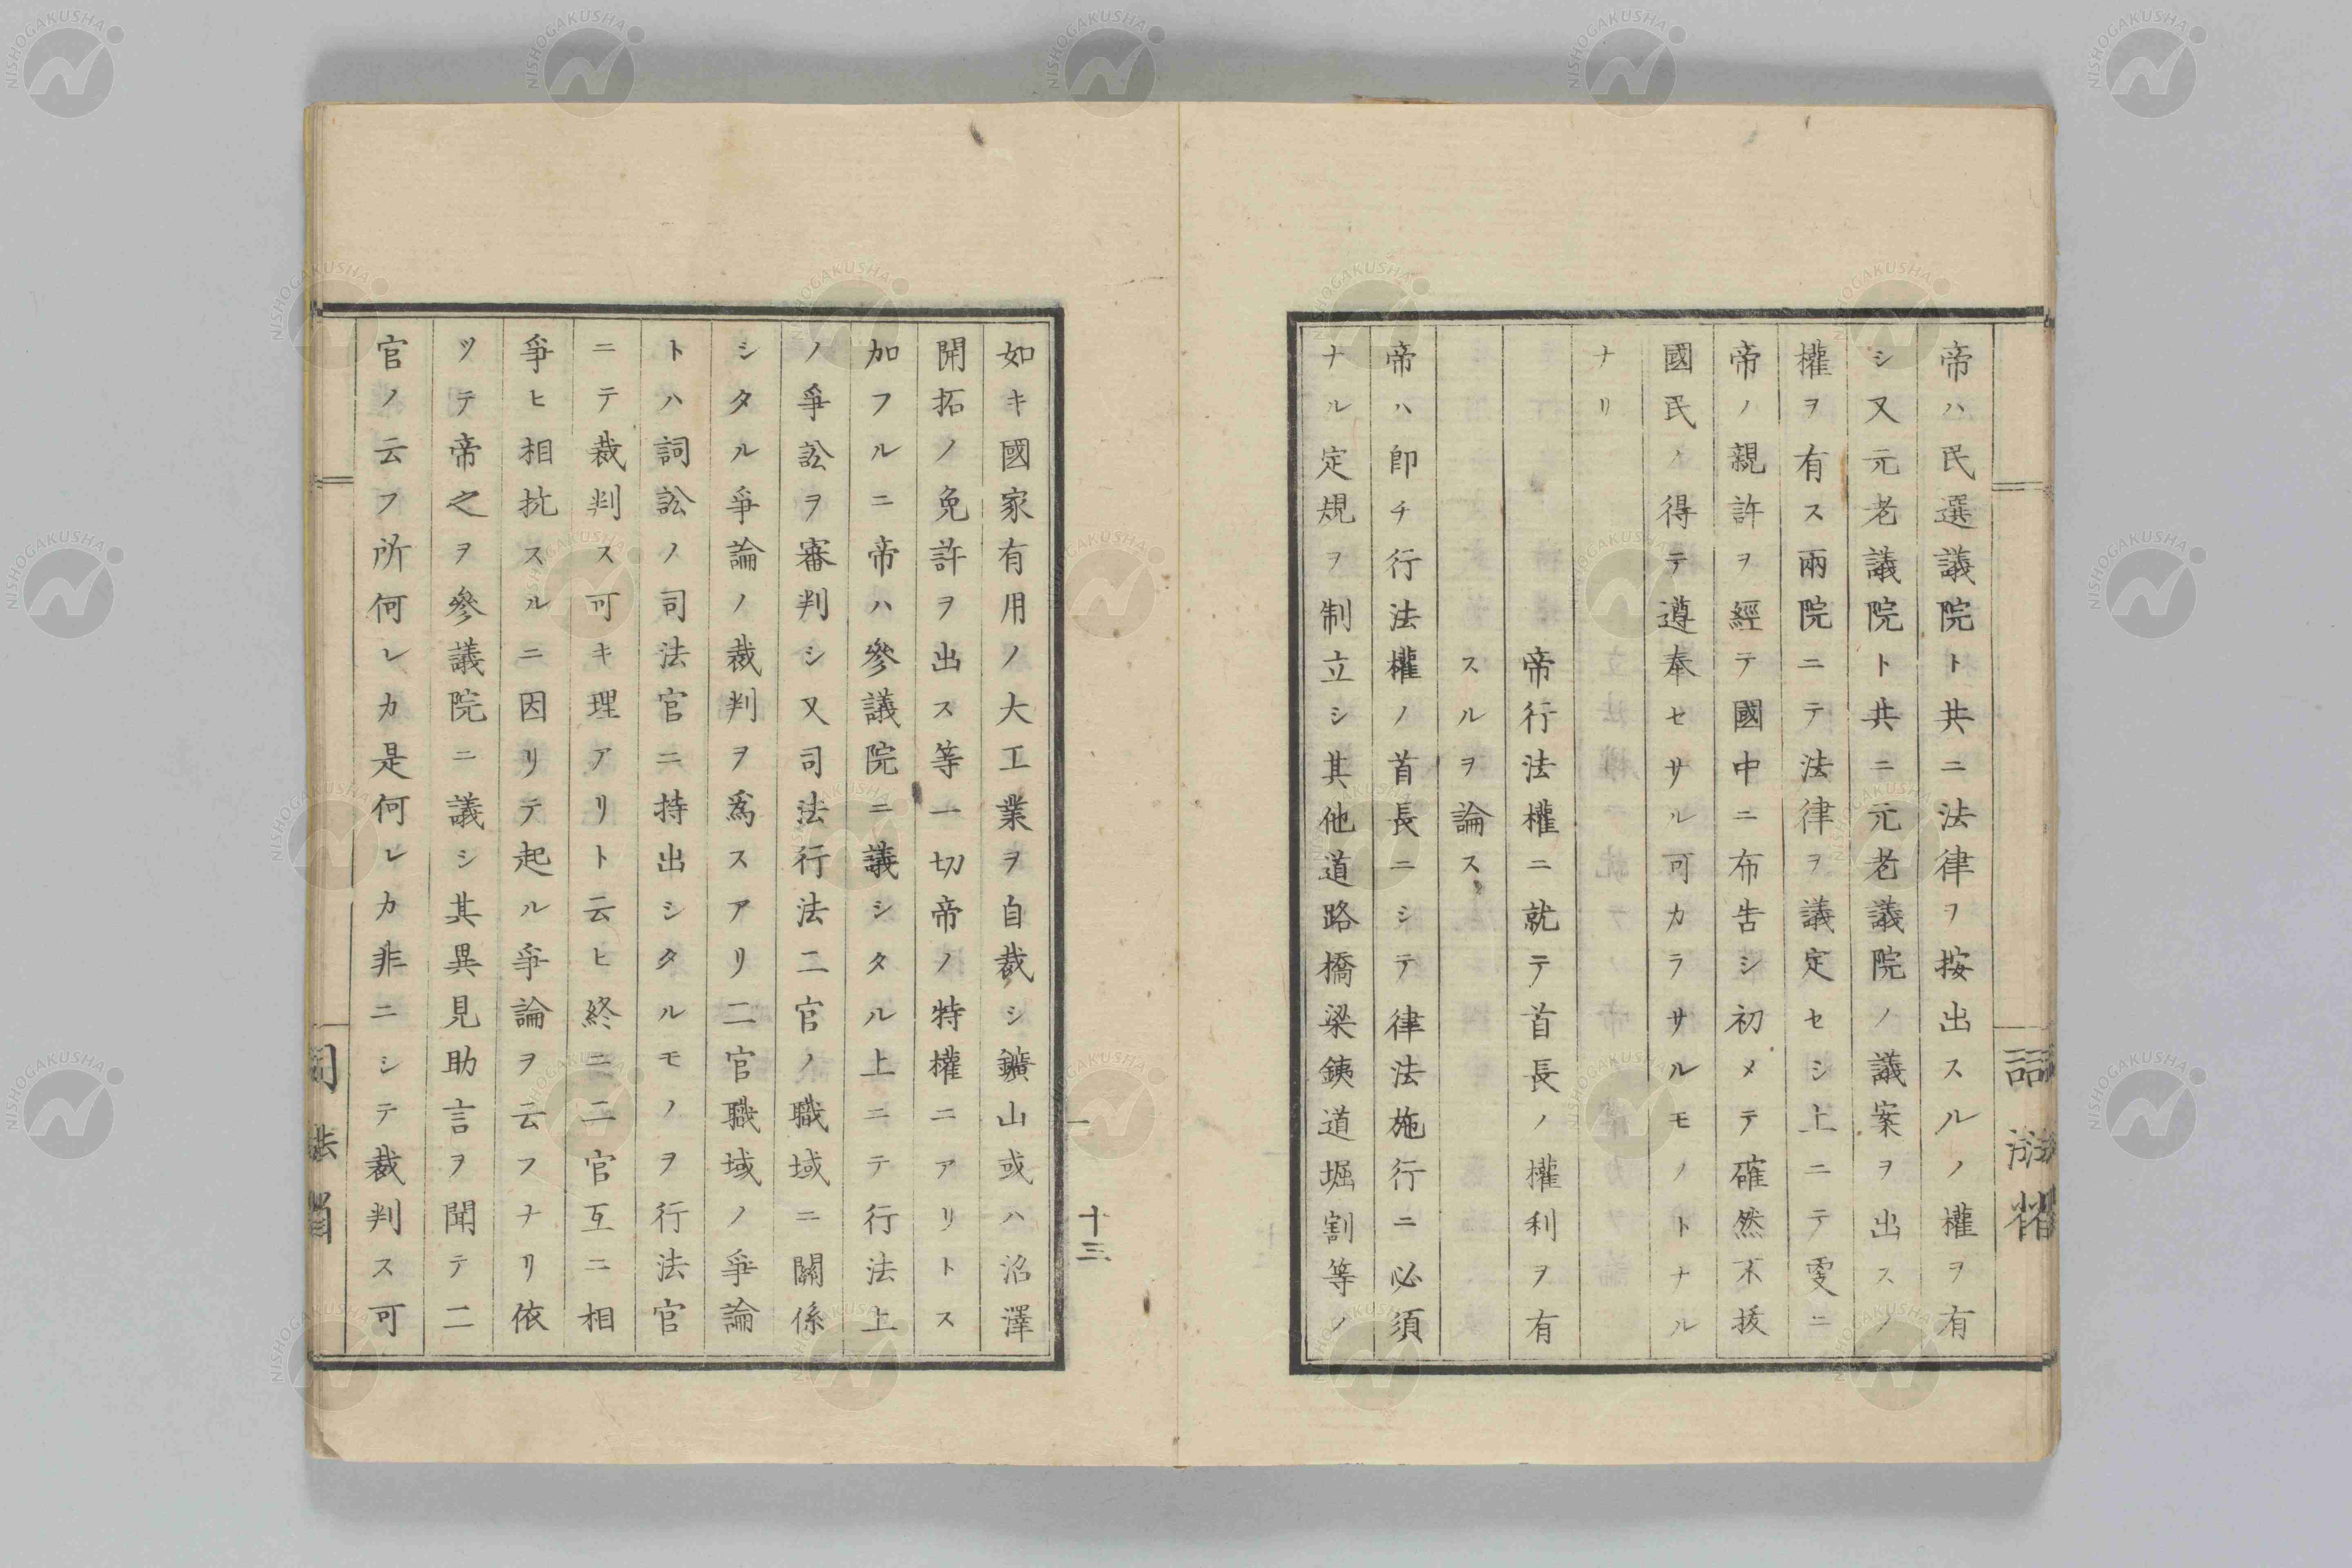 帝ハ民選議院ト共ニ法律ヲ按出スルノ權ヲ有
シ又元老議院ト共ニ元老議院ノ議案ヲ出スノ
權ヲ有ス兩院ニテ法律ヲ議定セシ上ニテ更ニ
帝ノ親許ヲ經テ國中ニ布告シ初メテ確然不拔
國民ノ得テ遵奉セサル可カラサルモノトナル
ナリ
帝行法權ニ就テ首長ノ權利ヲ有
スルヲ論ス
帝ハ即チ行法權ノ首長ニシテ律法施行ニ必須
ナル定規ヲ制立シ其他道路橋梁銕道堀割等ノ
司法省
十三
如キ國家有用ノ大工業ヲ自裁シ鑛山或ハ沼澤
開拓ノ免許ヲ出ス等一切帝ノ特權ニアリトス
加フルニ帝ハ參議院ニ議シタル上ニテ行法上
ノ爭訟ヲ審判シ又司法行法二官ノ職域ニ關係
シタル爭論ノ裁判ヲ爲スアリ二官職域ノ爭論
トハ詞訟ノ司法官ニ持出シタルモノヲ行法官
ニテ裁判ス可キ理アリト云ヒ終ニ二官互ニ相
爭ヒ相抗スルニ因リテ起ル爭論ヲ云フナリ依
ツテ帝之ヲ參議院ニ議シ其異見助言ヲ聞テ二
官ノ云フ所何レカ是何レカ非ニシテ裁判ス可
司法省
NISHOGAKUSHA